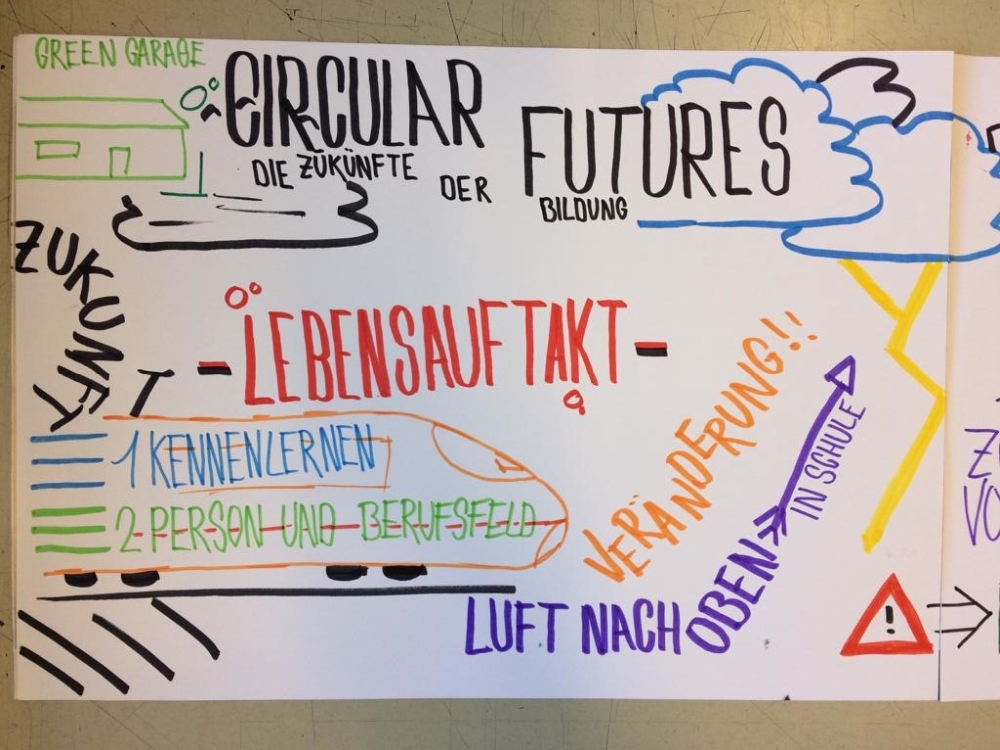 GREEN GARAGE
CIRCULAR
FUTURES
DIE ZUKÜNFTE DER BILDUNG
ZUKUNFT
- LEBENSAUFTAKT -
1 KENNENLERNEN
2 PERSON UND BERUFSFELD
VERÄNDERUNG!!
LUFT NACH OBEN
IN SCHULE
!